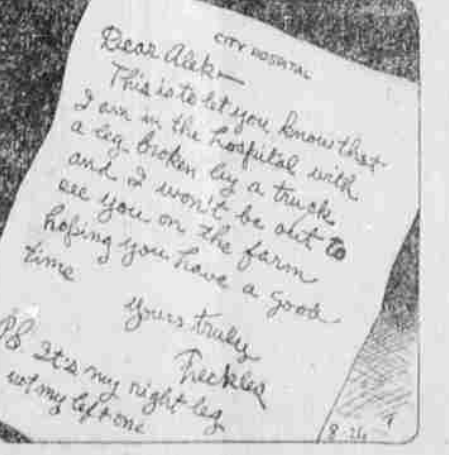 CITY HOSPITAL
Dear Alek—
This is to let you know that
I am in the hospital with
a leg broken by a truck
and I won't be out to
see you on the farm
hoping you have a good
time
yours truly
Freckles
PS. It's my right leg
not my left one
8-26